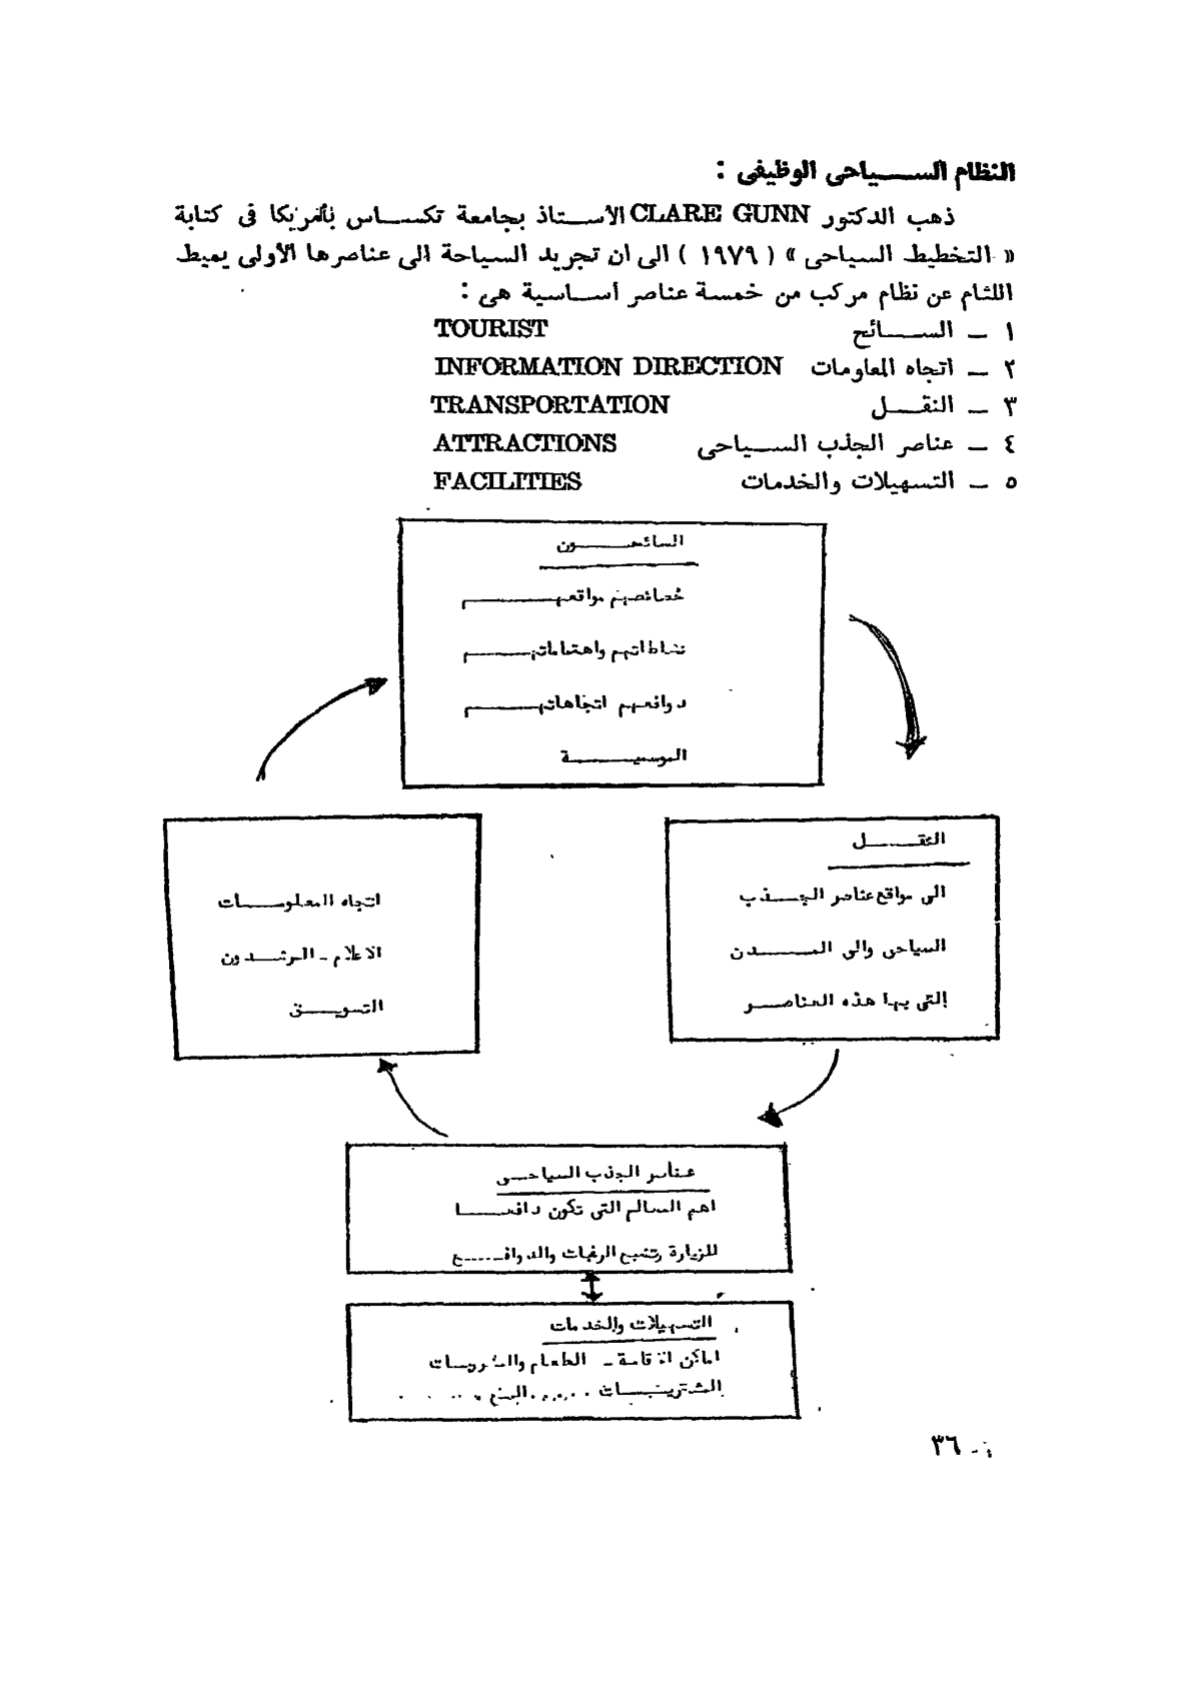 النظام السياحى الوظيفى :
ذهب الدكتور CLARE GUNN الأستاذ بجامعة تكساس بأمريكا فى كتابة
« التخطيط السياحى » ( ١٩٧٩ ) الى ان تجريد السياحة الى عناصرها الأولى يميط
اللثام عن نظام مركب من خمسة عناصر أساسية هى :
١ ــ السائح TOURIST
٢ ــ اتجاه المعلومات INFORMATION DIRECTION
٣ ــ النقل TRANSPORTATION
٤ ــ عناصر الجذب السياحى ATTRACTIONS
٥ ــ التسهيلات والخدمات FACILITIES
السائحون
خصائصهم مواقعهم
نشاطاتهم واهتماماتهم
دوافعهم اتجاهاتهم
الموسمية
النقل
الى مواقع عناصر الجذب
السياحى والى المدن
التى بها هذه العناصر
اتجاه المعلومات
الاعلام - المرشدون
التسويق
عناصر الجذب السياحى
اهم المعالم التى تكون دافعا
للزيارة وتشبع الرغبات والدوافع
التسهيلات والخدمات
اماكن الاقامة - الطعام والمشروبات
المشتريات
٣٦